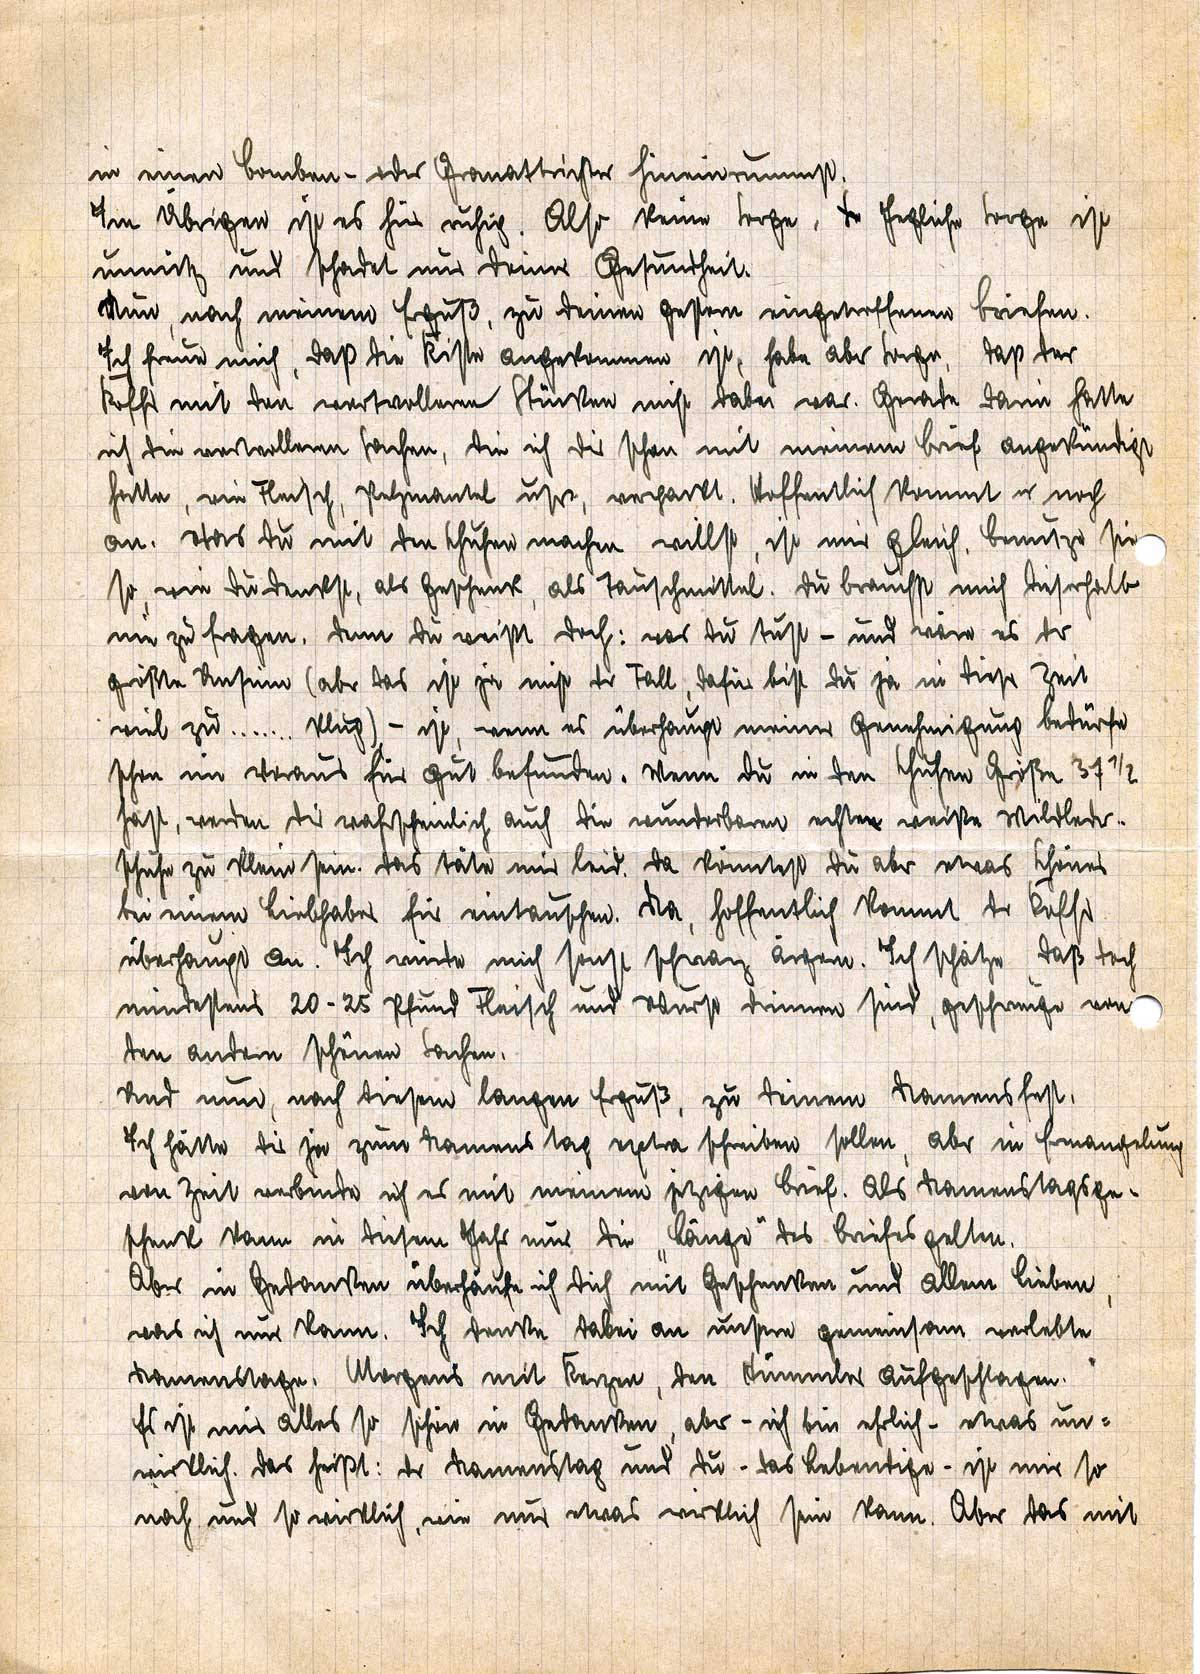 in einen Bomben- oder Granattrichter hineinrummst.
Im Übrigen ist es hier ruhig. Also keine Sorge, Jegliche Sorge ist
unnütz und schadet nur Deiner Gesundheit.
Nun, nach meinem Erguß, zu Deinen gestern eingetroffenen Briefen.
Ich freue mich, daß die Kiste angekommen ist, habe aber Sorge, daß der
Koffer mit den wertvolleren Stücken nicht dabei war. Gerade darin hatte
ich die wertvolleren Sachen, die ich Dir schon mit meinem Brief angekündigt
hatte, wie Fleisch, Pelzmantel usw, verpackt. Hoffentlich kommt er noch
an. Was Du mit den Schuhen machen willst, ist mir gleich. Benutze sie
so, wie Du denkst, als Geschenk, als Tauschmittel. Du brauchst mich dieserhalb
nie zu fragen. Denn Du weißt doch: was Du tust - und wäre es der
größte Unsinn (aber das ist ja nicht der Fall, dafür bist Du ja in dieser Zeit
viel zu ....... klug) - ist, wenn es überhaupt meiner Genehmigung bedürfe
schon im Voraus für gut befunden. Wenn Du in den Schuhen Größe 37 1/2
hast, werden Dir wahrscheinlich auch die wunderbaren echten weiße Wildleder-
schuhe zu klein sein. Das täte mir leid. Da könntest Du aber etwas Schönes
bei einem Liebhaber für eintauschen. Na, hoffentlich kommt der Koffer
überhaupt an. Ich würde mich sonst schwarz ärgern. Ich schätze, daß doch
mindestens 20-25 Pfund Fleisch und Wurst drinnen sind, geschweige von
den andern schönen Sachen.
Und nun, nach diesem langen Erguß, zu Deinem Namensfest.
Ich hätte Dir ja zum Namenstag extra schreiben sollen, aber in Ermangelung
von Zeit verbinde ich es mit meinem jetzigen Brief. Als Namenstagsge-
schenk kann in diesem Jahr nur die „Länge" des Briefes gelten.
Aber in Gedanken überhäufe ich Dich mit Geschenken und allem Lieben,
was ich nur kann. Ich denke dabei an unsere gemeinsam verlebte
Namenstage. Morgens mit Kerzen, den aufgeschlagen.
Es ist mir alles so schön in Gedanken, aber - ich bin ehrlich - etwas un=
wirklich. Das heißt: der Namenstag und Du - das Lebendige - ist mir so
nah und so wirklich, wie nur etwas wirklich sein kann. Aber das mit